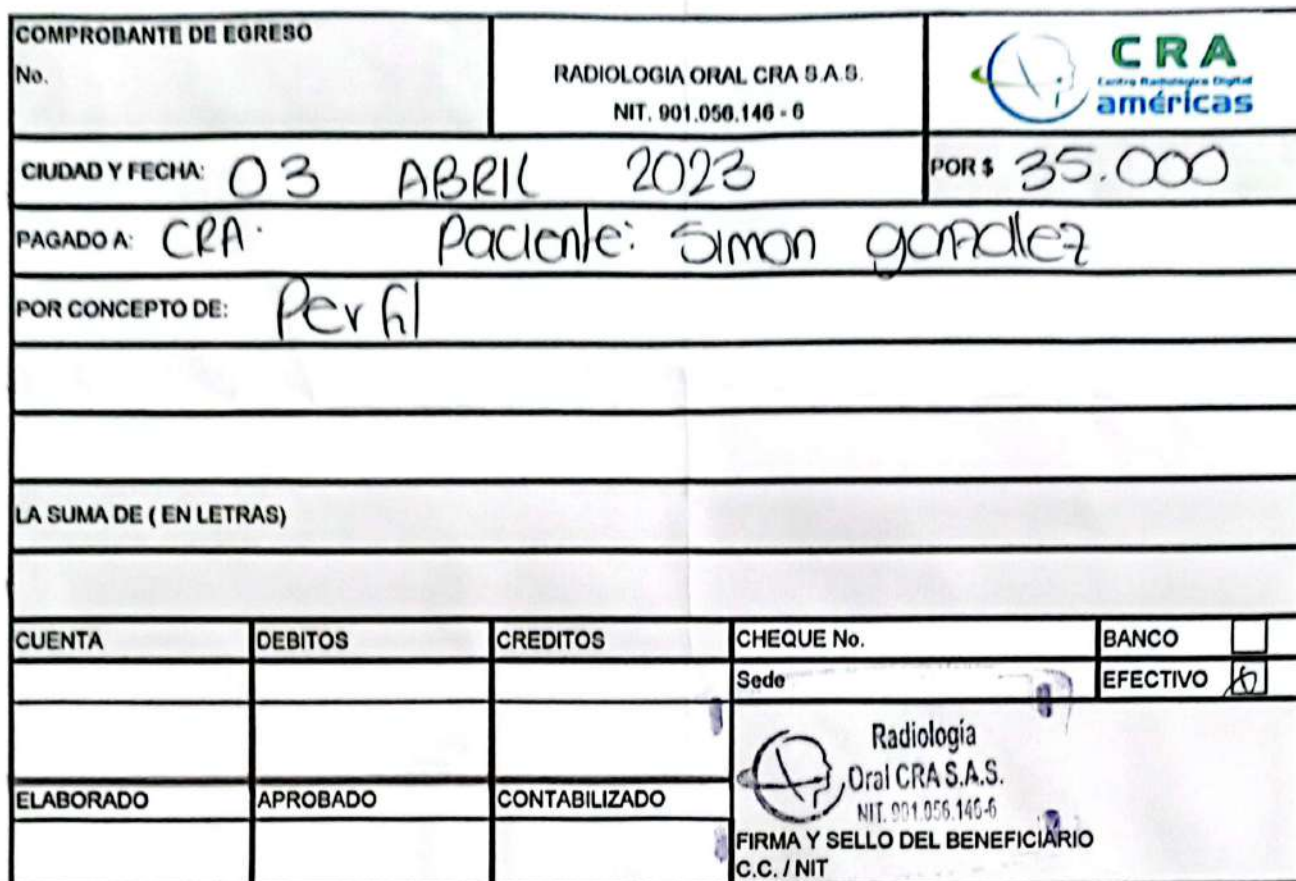 COMPROBANTE DE EGRESO
No.
RADIOLOGIA ORAL CRA S.A.S.
NIT. 901.056.146 - 6
CRA
Centro Radiologico Digital
américas
CIUDAD Y FECHA: 03 ABRIL 2023
POR $ 35.000
PAGADO A: CRA. Paciente: Simon gonzalez
POR CONCEPTO DE: Perfil
LA SUMA DE ( EN LETRAS)
CUENTA DEBITOS CREDITOS CHEQUE No. BANCO
Sede EFECTIVO
Radiología
Oral CRA S.A.S.
NIT. 901.056.146-6
ELABORADO APROBADO CONTABILIZADO
FIRMA Y SELLO DEL BENEFICIARIO
C.C. / NIT